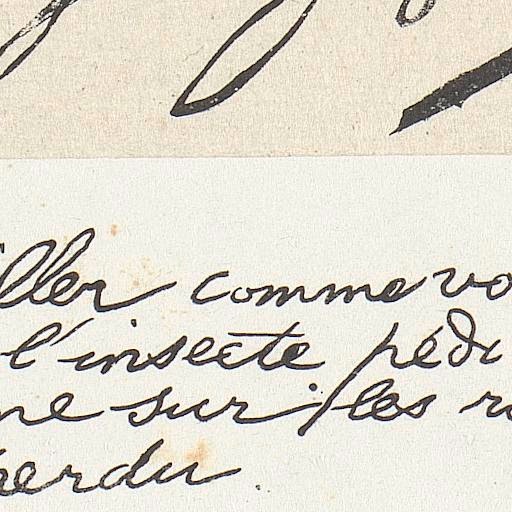 iller comme vo
l'insecte pédi
ne sur les ro
perdu.